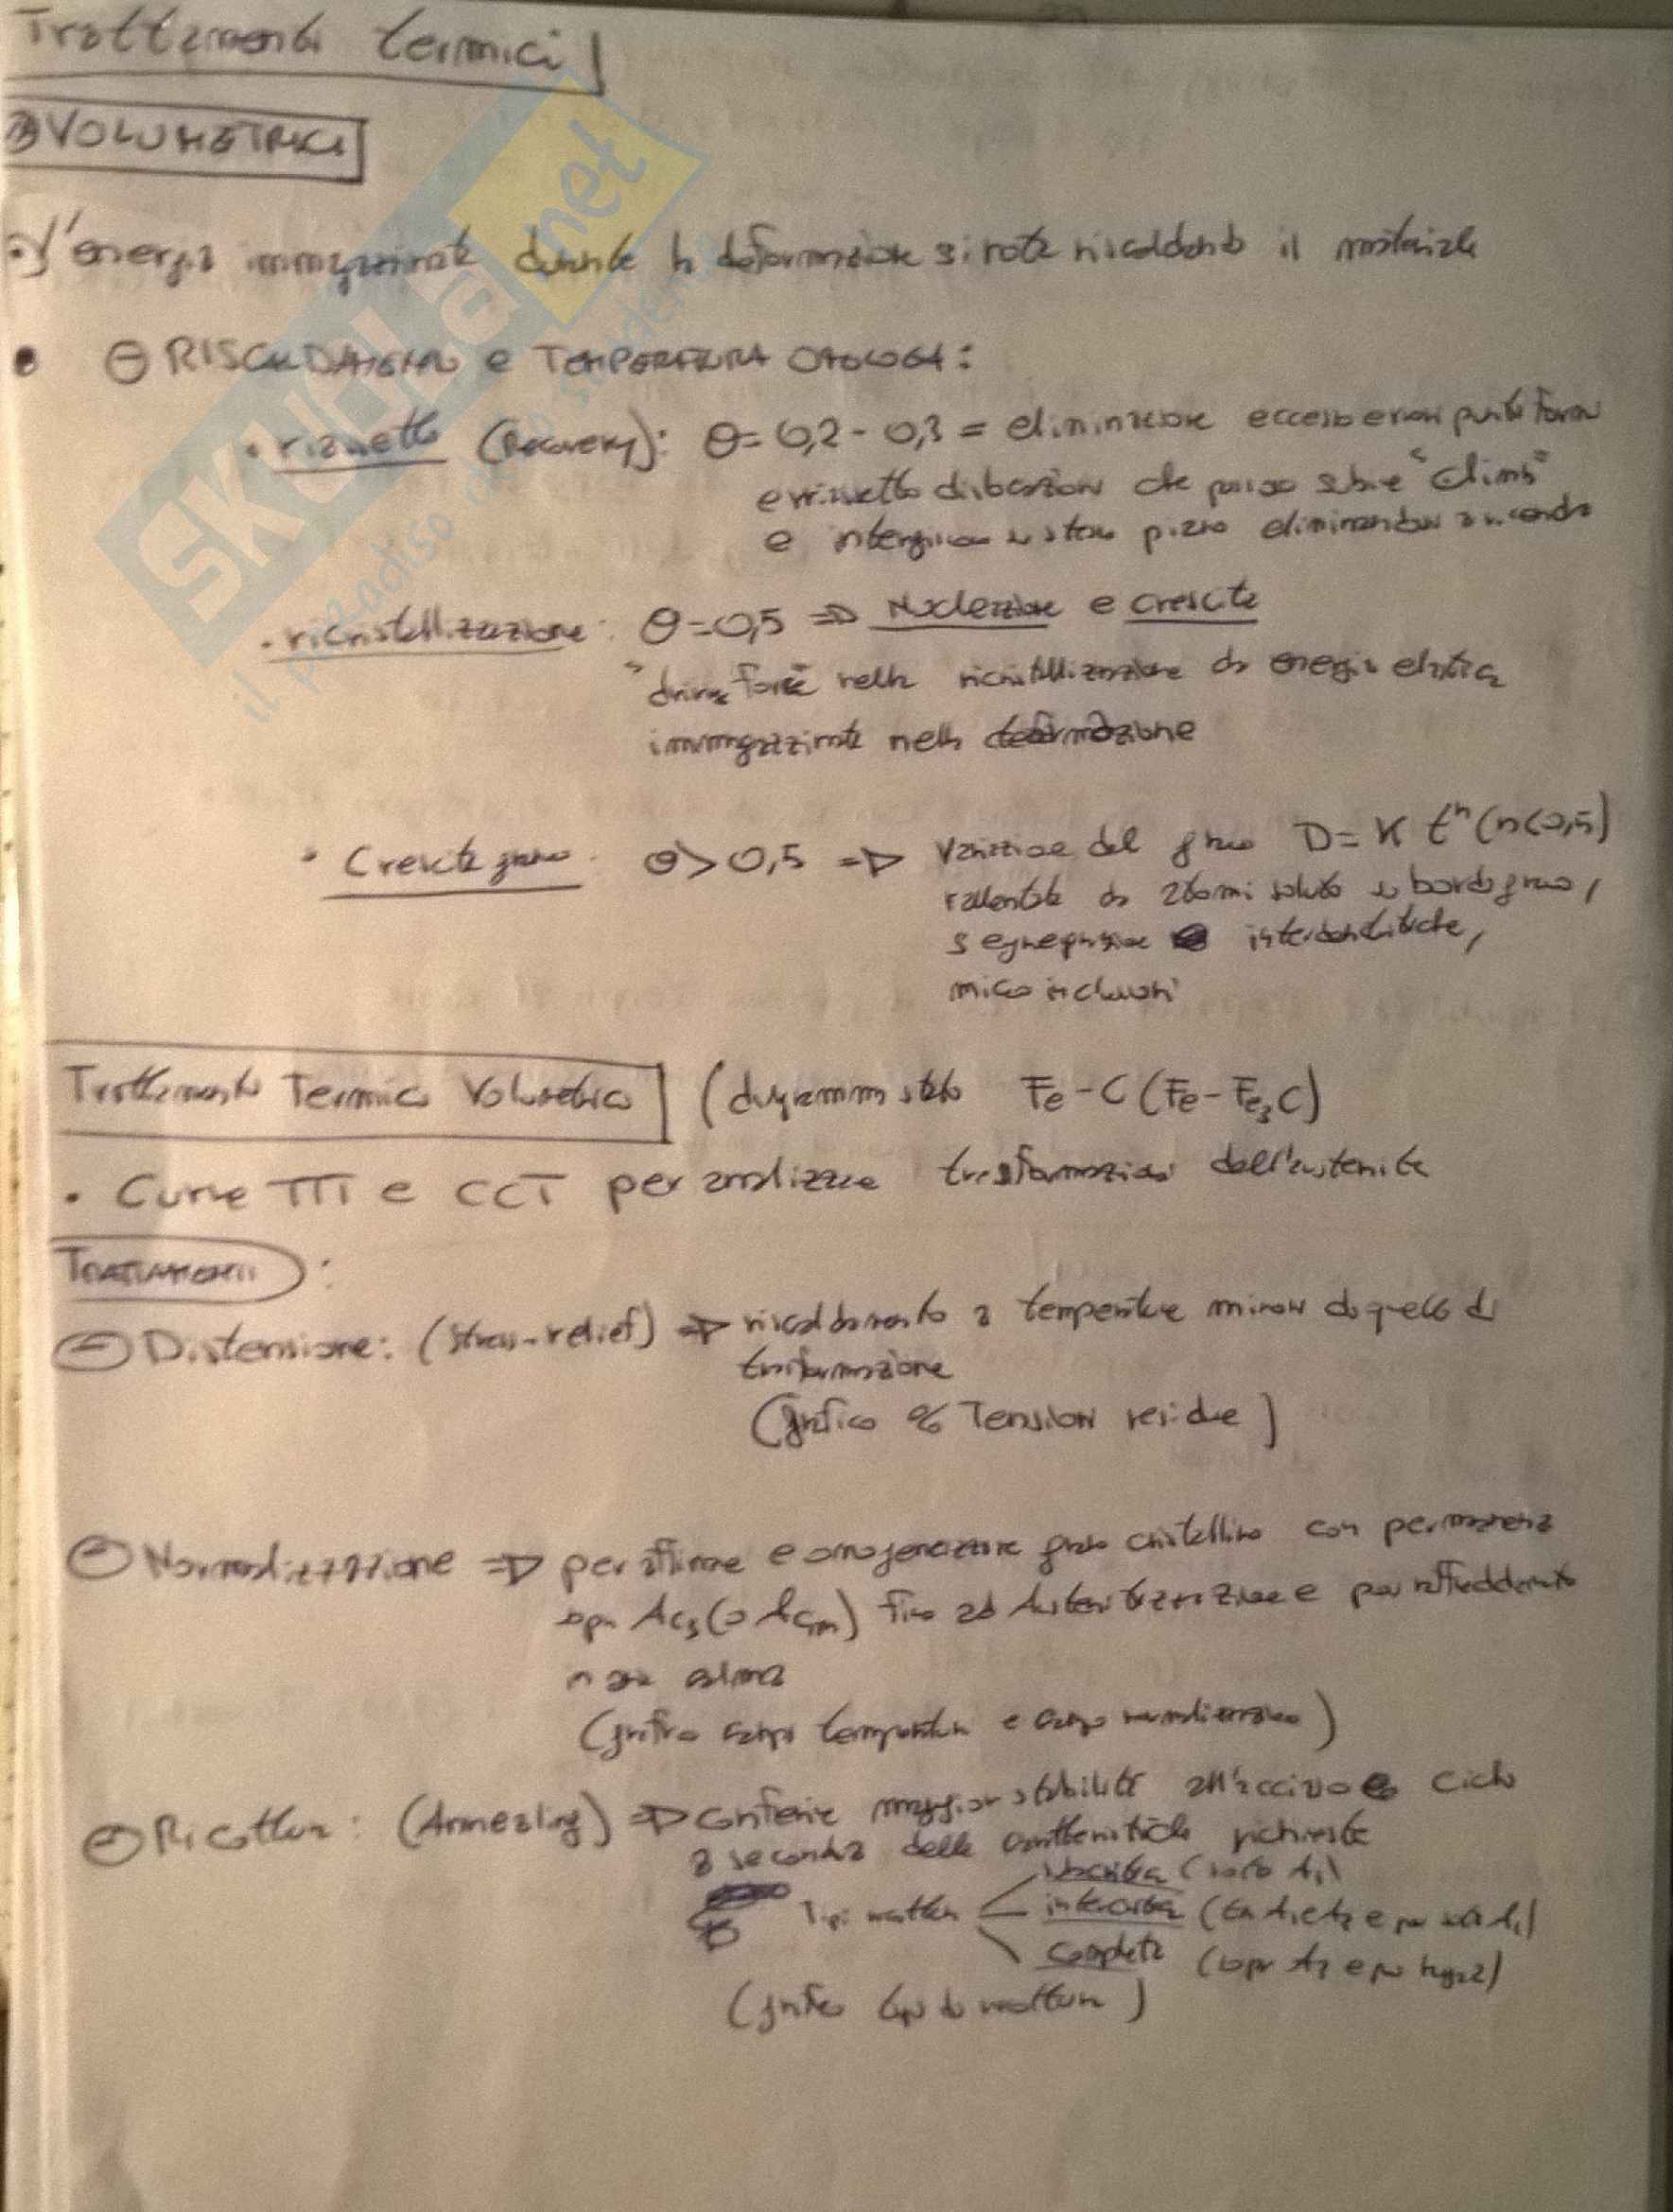 Trattamenti termici
VOLUMETRICI
L'energia immagazzinata durante la deformazione si nota riscaldando il materiale
RISCALDAMENTO e TEMPERATURA OMOLOGA:
rianetto (Recovery): θ = 0,2 - 0,3 = eliminazione eccesso errori puntiformi
e rianetto dislocazioni che "climb"
e piano eliminandosi a vicenda
ricristallizzazione: θ = 0,5 ⇒ Nucleazione e crescita
"driving force" nella ricristallizzazione da energia elastica
immagazzinata nella deformazione
Crescita grano θ > 0,5 ⇒ Variazione del grano D = K tⁿ (n<0,5)
rallentata da atomi soluto a bordo grano,
segregazione interdendritiche,
micro inclusioni
Trattamento Termico Volumetrico (diagramma stato Fe-C (Fe-Fe₃C)
Curve TTT e CCT per analizzare trasformazioni dell'austenite
TRATTAMENTI:
Distensione: (stress-relief) ⇒ riscaldamento a temperature minori da quello di
trasformazione
(grafico % Tensioni residue)
Normalizzazione ⇒ per affinare e omogeneizzare grano cristallino con permanenza
sopra Ac₃ (o Acm) fino ad Austenitizzazione e poi raffreddamento
in aria calma
(grafico campi temperatura e campo normalizzazione)
Ricottura: (Annealing) ⇒ conferire maggior stabilità all'acciaio e ciclo
a seconda delle caratteristiche richieste
Tipi ricottura
subcritica (sotto A₁)
intercritica (tra A₁ e A₃ e poi sotto A₁)
completa (sopra A₃ e poi)
(grafico tipi di ricottura)
SKUOLA.net
il paradiso dello studente